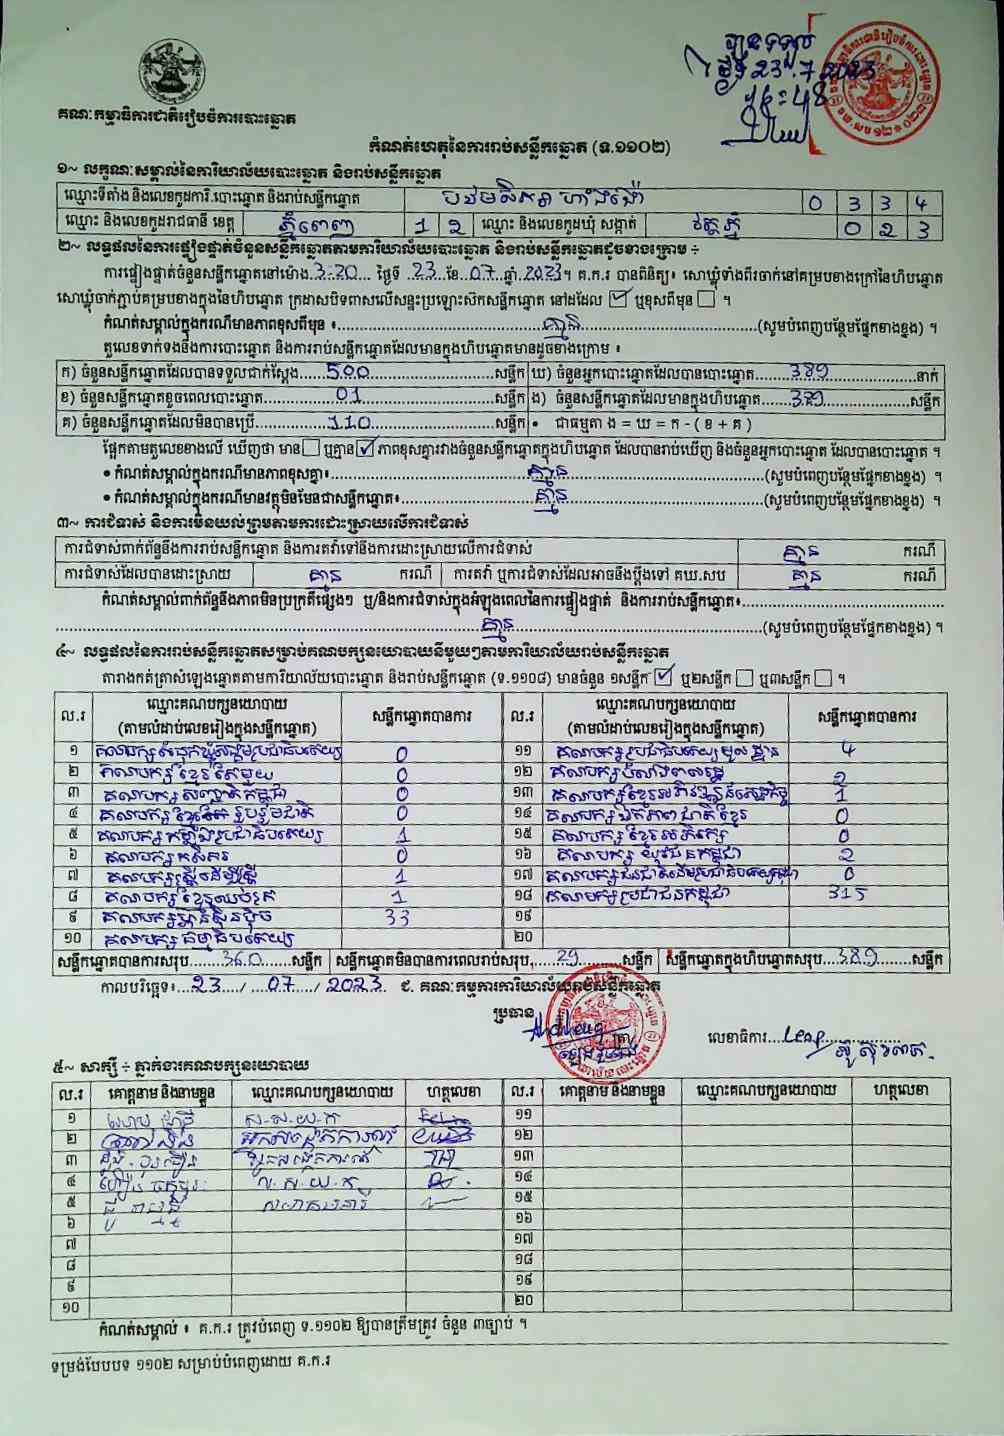 បានទទួល
ថ្ងៃទី 23.7.2023
គណៈកម្មាធិការជាតិរៀបចំការបោះឆ្នោត
កំណត់ហេតុនៃការរាប់សន្លឹកឆ្នោត (ទ.១១០២)
១~ លក្ខណៈសម្គាល់នៃការិយាល័យបោះឆ្នោត និងរាប់សន្លឹកឆ្នោត
ឈ្មោះទីតាំង និងលេខកូដការិ.បោះឆ្នោត និងរាប់សន្លឹកឆ្នោត បឋមសិក្សា 0 3 3 4
ឈ្មោះ និងលេខកូដរាជធានី ខេត្ត ភ្នំពេញ 1 2 ឈ្មោះ និងលេខកូដឃុំ សង្កាត់ វត្តភ្នំ 0 2 3
២~ លទ្ធផលនៃការផ្ទៀងផ្ទាត់ចំនួនសន្លឹកឆ្នោតតាមការិយាល័យបោះឆ្នោត និងរាប់សន្លឹកឆ្នោតដូចខាងក្រោម ÷
ការផ្ទៀងផ្ទាត់ចំនួនសន្លឹកឆ្នោតនៅម៉ោង 3:20 ថ្ងៃទី 23 ខែ 07 ឆ្នាំ 2023។ គ.ក.រ បានពិនិត្យ៖ សោឃ្លុំទាំងពីរចាក់នៅគម្របខាងក្រៅនៃហិបឆ្នោត
សោឃ្លុំចាក់ភ្ជាប់គម្របខាងក្នុងនៃហិបឆ្នោត ក្រដាសបិទពាសលើសន្ទះប្រឡោះស៊កសន្លឹកឆ្នោត នៅដដែល ☑ ឬខុសពីមុន ☐ ។
កំណត់សម្គាល់ក្នុងករណីមានភាពខុសពីមុន ៖ គ្មាន (សូមបំពេញបន្ថែមផ្នែកខាងខ្នង) ។
តួលេខទាក់ទងនឹងការបោះឆ្នោត និងការរាប់សន្លឹកឆ្នោតដែលមានក្នុងហិបឆ្នោតមានដូចខាងក្រោម ៖
ក) ចំនួនសន្លឹកឆ្នោតដែលបានទទួលជាក់ស្តែង 500 សន្លឹក ឃ) ចំនួនអ្នកបោះឆ្នោតដែលបានបោះឆ្នោត 389 នាក់
ខ) ចំនួនសន្លឹកឆ្នោតខូចពេលបោះឆ្នោត 01 សន្លឹក ង) ចំនួនសន្លឹកឆ្នោតដែលមានក្នុងហិបឆ្នោត 389 សន្លឹក
គ) ចំនួនសន្លឹកឆ្នោតដែលមិនបានប្រើ 110 សន្លឹក • ជាធម្មតា ង = ឃ = ក - ( ខ + គ )
ផ្អែកតាមតួលេខខាងលើ ឃើញថា មាន ☐ ឬគ្មាន ☑ ភាពខុសគ្នារវាងចំនួនសន្លឹកឆ្នោតក្នុងហិបឆ្នោត ដែលបានរាប់ឃើញ និងចំនួនអ្នកបោះឆ្នោត ដែលបានបោះឆ្នោត ។
• កំណត់សម្គាល់ក្នុងករណីមានភាពខុសគ្នា៖ គ្មាន (សូមបំពេញបន្ថែមផ្នែកខាងខ្នង) ។
• កំណត់សម្គាល់ក្នុងករណីមានវត្ថុមិនមែនជាសន្លឹកឆ្នោត៖ គ្មាន (សូមបំពេញបន្ថែមផ្នែកខាងខ្នង) ។
៣~ ការជំទាស់ និងការមិនយល់ព្រមតាមការដោះស្រាយលើការជំទាស់
ការជំទាស់ពាក់ព័ន្ធនឹងការរាប់សន្លឹកឆ្នោត និងការតវ៉ាទៅនឹងការដោះស្រាយលើការជំទាស់ គ្មាន ករណី
ការជំទាស់ដែលបានដោះស្រាយ គ្មាន ករណី ការតវ៉ា ឬការជំទាស់ដែលអាចនឹងប្តឹងទៅ គឃ.សប គ្មាន ករណី
កំណត់សម្គាល់ពាក់ព័ន្ធនឹងភាពមិនប្រក្រតីផ្សេងៗ ឬ/និងការជំទាស់ក្នុងអំឡុងពេលនៃការផ្ទៀងផ្ទាត់ និងការរាប់សន្លឹកឆ្នោត៖
គ្មាន (សូមបំពេញបន្ថែមផ្នែកខាងខ្នង) ។
៤~ លទ្ធផលនៃការរាប់សន្លឹកឆ្នោតសម្រាប់គណបក្សនយោបាយនីមួយៗតាមការិយាល័យរាប់សន្លឹកឆ្នោត
តារាងកត់ត្រាសំឡេងឆ្នោតតាមការិយាល័យបោះឆ្នោត និងរាប់សន្លឹកឆ្នោត (ទ.១១០៨) មានចំនួន ១សន្លឹក ☑ ឬ២សន្លឹក ☐ ឬ៣សន្លឹក ☐ ។
ល.រ ឈ្មោះគណបក្សនយោបាយ (តាមលំដាប់លេខរៀងក្នុងសន្លឹកឆ្នោត) សន្លឹកឆ្នោតបានការ ល.រ ឈ្មោះគណបក្សនយោបាយ (តាមលំដាប់លេខរៀងក្នុងសន្លឹកឆ្នោត) សន្លឹកឆ្នោតបានការ
១ គណបក្សសំបុកឃ្មុំសង្គមប្រជាធិបតេយ្យ 0 ១១ គណបក្សប្រជាធិបតេយ្យមូលដ្ឋាន 4
២ គណបក្សខ្មែរតែមួយ 0 ១២
៣ គណបក្សសញ្ជាតិកម្ពុជា 0 ១៣ គណបក្សខ្មែរអភិវឌ្ឍន៍សេដ្ឋកិច្ច 1
៤ គណបក្សខ្មែររួបរួមជាតិ 0 ១៤ គណបក្សឯកភាពជាតិខ្មែរ 0
៥ គណបក្សកម្លាំងប្រជាធិបតេយ្យ 1 ១៥ គណបក្សខ្មែរអភិរក្ស 0
៦ គណបក្សកសិករ 0 ១៦ គណបក្សយុវជនកម្ពុជា 2
៧ គណបក្សស្ត្រីដើម្បីស្ត្រី 1 ១៧ គណបក្សជនជាតិដើមប្រជាធិបតេយ្យកម្ពុជា 0
៨ គណបក្សខ្មែរឈប់ក្រ 1 ១៨ គណបក្សប្រជាជនកម្ពុជា 315
៩ គណបក្សហ្វ៊ុនស៊ិនប៉ិច 33 ១៩
១០ គណបក្សធម្មាធិបតេយ្យ ២០
សន្លឹកឆ្នោតបានការសរុប 360 សន្លឹក សន្លឹកឆ្នោតមិនបានការពេលរាប់សរុប 29 សន្លឹក សន្លឹកឆ្នោតក្នុងហិបឆ្នោតសរុប 389 សន្លឹក
កាលបរិច្ឆេទ៖ 23 / 07 / 2023 ជ. គណៈកម្មការការិយាល័យរាប់សន្លឹកឆ្នោត
ប្រធាន
លេខាធិការ
៥~ សាក្សី ÷ ភ្នាក់ងារគណបក្សនយោបាយ
ល.រ គោត្តនាម និងនាមខ្លួន ឈ្មោះគណបក្សនយោបាយ ហត្ថលេខា ល.រ គោត្តនាម និងនាមខ្លួន ឈ្មោះគណបក្សនយោបាយ ហត្ថលេខា
១ ស.ស.យ.ក ១១
២ ១២
៣ ១៣
៤ ស.យ.ក ១៤
៥ ១៥
៦ ១៦
៧ ១៧
៨ ១៨
៩ ១៩
១០ ២០
កំណត់សម្គាល់ ៖ គ.ក.រ ត្រូវបំពេញ ទ.១១០២ ឱ្យបានត្រឹមត្រូវ ចំនួន ៣ច្បាប់ ។
ទម្រង់បែបបទ ១១០២ សម្រាប់បំពេញដោយ គ.ក.រ